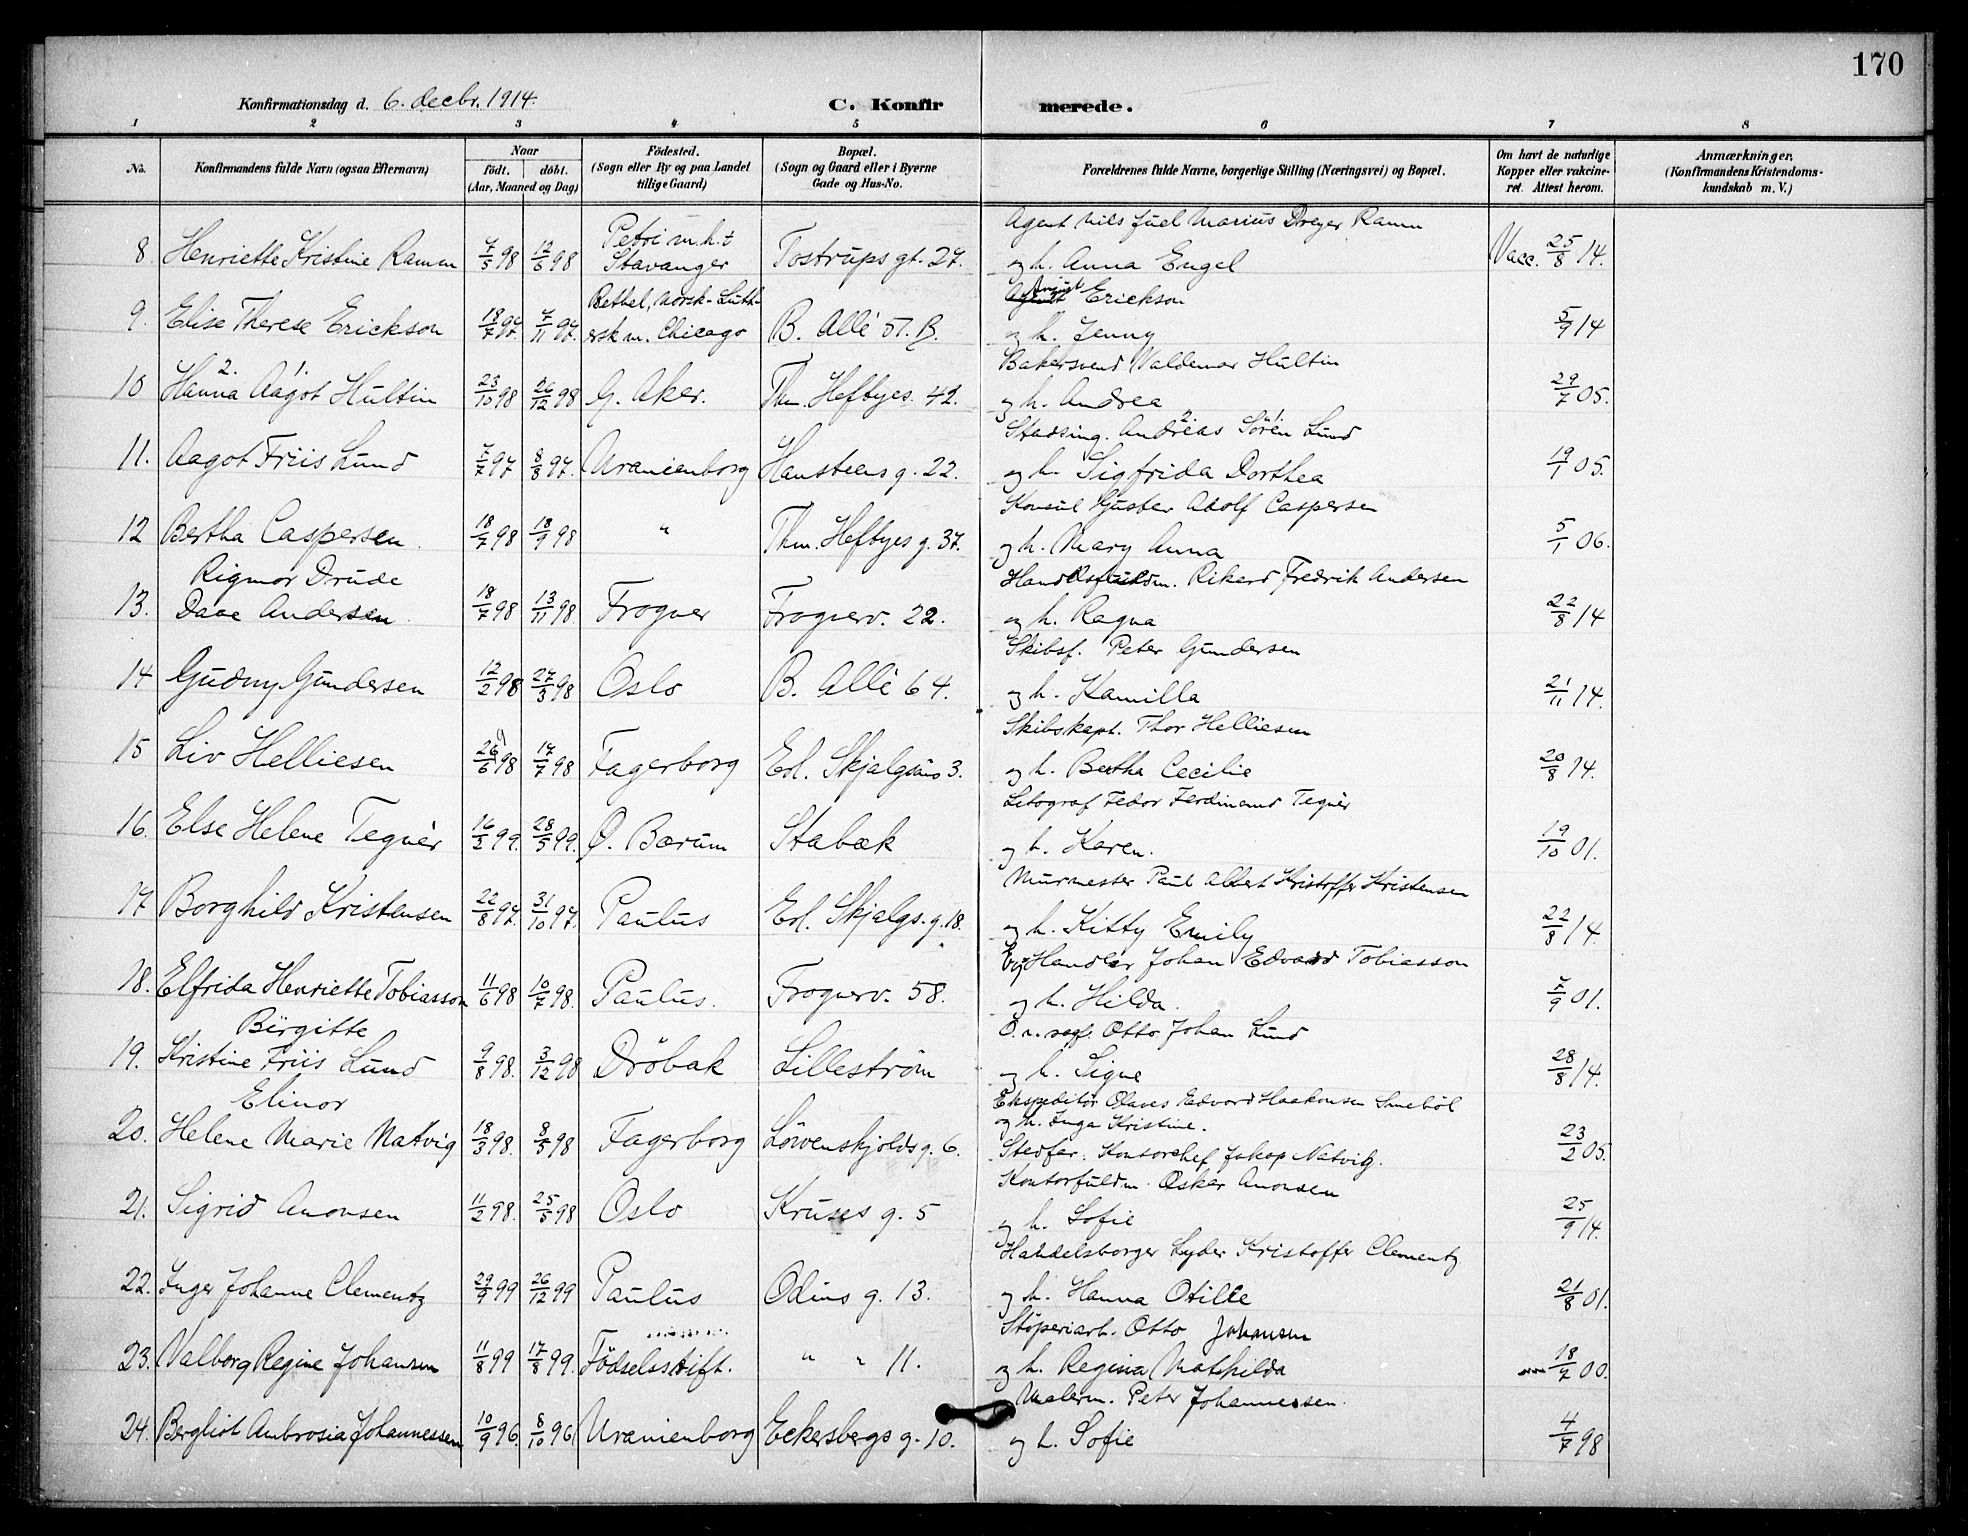 170
Konfirmationsdag d. 6. decbr. 1914.
C. Konfirmerede.
1 2 3 4 5 6 7 8
No. Konfirmandens fulde Navn (ogsaa Efternavn)
Naar
födt. döbt.
(Aar, Maaned og Dag)
Födested.
(Sogn eller By og paa Landet
tillige Gaard)
Bopæl.
(Sogn og Gaard eller i Byerne
Gade og Hus-No.
Forældrenes fulde Navne, borgerlige Stilling (Næringsvei) og Bopæl.
Om havt de naturlige
Kopper eller vakcine-
ret. Attest herom.
Anmærkninger.
(Konfirmandens Kristendoms-
kundskab m. V.)
Agent Nils Juel Marius Dreyer Ramm
Petri m.h.t
8. Henriette Kristine Ramm 7/5 98 12/6 98 Stavanger Tostrups gt. 27. og h. Anna Engel Vacc. 25/8 14.
Bethel, norsk-Luth- August Erickson
9. Elise Therese Erickson 18/7 97. 7/11 97. ersk m. Chicago B. Allé 51. B. og h. Jenny 5/9 14
Bakersvend Valdemar Hultin
2. 1.
10 Hanna Aagot Hultin 23/10 98 26/12 98 G. Aker. Thm. Heftyes. 42. og h. Andrea 29/7 05.
2. 1.
Stadsing. Andreas Sören Lund
11. Aagot Friis Lund 7/7 97 8/8 97. Uranienborg Hansteens g. 22. og h. Sigfrida Dorthea 19/1 05.
Konsul Gustav Adolf Caspersen
12 Bertha Caspersen 18/7 98 18/9 98 " Thm. Heftyes g. 37. og h. Mary Anna 5/1 06.
Rigmor Drude Handelsfuldm. Rikard Fredrik Andersen
13. Daae Andersen 18/7 98 13/11 98. Frogner Frognerv. 22. og h. Ragna 22/8 14
Skibsf. Peter Gundersen
14 Gudny Gundersen 12/2 98 27/3 98 Oslo B. Allé 64. og h. Kamilla 21/11 14.
Skibskapt. Thor Helliesen
15 Liv Helliesen 26/6 98 17/7 98 Fagerborg Erl. Skjalgsøns 3. og h. Bertha Cecilie 20/8 14.
Litograf Fedor Ferdinand Tegnèr
16. Else Helene Tegnèr 16/2 99. 28/5 99. Ø. Bærum Stabæk og h. Karen. 19/10 01.
Murmester Paul Albert Kristoffer Kristensen
17 Borghild Kristensen 22/8 97. 31/10 97. Paulus Erl. Skjalgs. g. 18. og h. Kitty Emily 22/8 14.
Handler Johan Edvard Tobiasson
18. Elfrida Henriette Tobiasson 11/6 98 10/7 98. Paulus. Frognerv. 58. og h. Hilda. 7/9 01.
Birgitte O.r. sagf. Otto Johan Lund
19. Kristine Friis Lund 9/8 98. 3/12 98 Dröbak Lilleström og h. Signe 28/8 14.
Elinor Ekspeditör Olaves Edvard Haakonsen Smeböl
og h. Inga Kristine.
20. Helene Marie Natvig 18/3 98. 8/5 98 Fagerborg Löwenskjolds g. 6. Stedfar: Kontorchef Jakop Natvig. 23/2 05.
Kontorfuldm. Oskar Amonsen
21. Sigrid Amonsen 11/2 98. 25/5 98 Oslo Kruses g. 5 og h. Sofie 25/9 14.
Handelsborger Lyder Kristoffer Clementz
22. Inger Johanne Clementz 29/9 99 26/12 99 Paulus Odins g. 13. og h. Hanna Otilie 21/8 01.
Stöperiarb. Otto Johansen
23. Valborg Regine Johansen 11/8 99 17/8 99. Födselsstift. " " 11. og h. Regina Mathilda 18/7 00.
Malerm. Peter Johannessen.
24. Bergliot Ambrosia Johannessen 10/9 96. 8/10 96 Uranienborg Eckersbergs g. 10. og h. Sofie 4/7 98